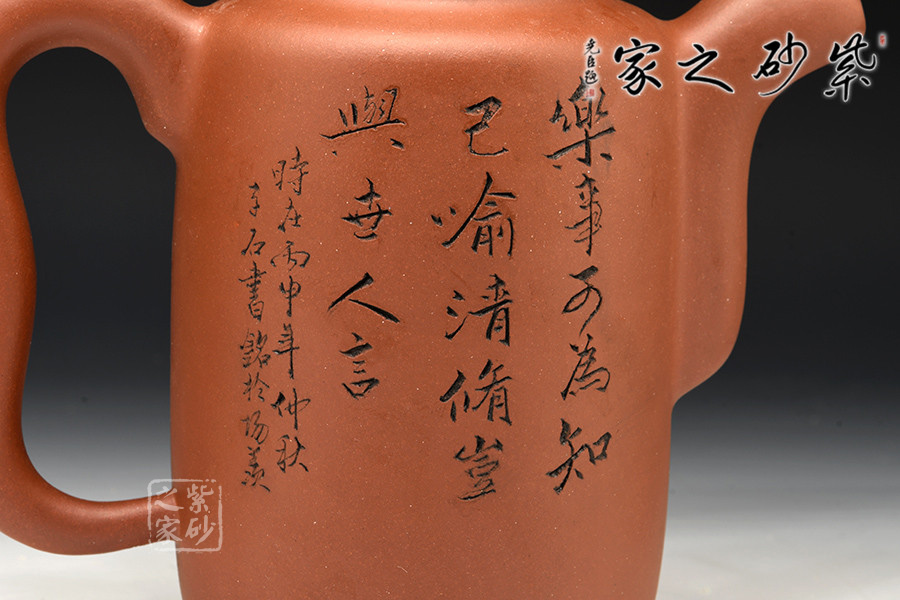 紫砂之家
克臣題
樂事可為知
己喻清脩豈
與世人言
時在丙申年仲秋
石書銘於陽羨
紫砂
之家